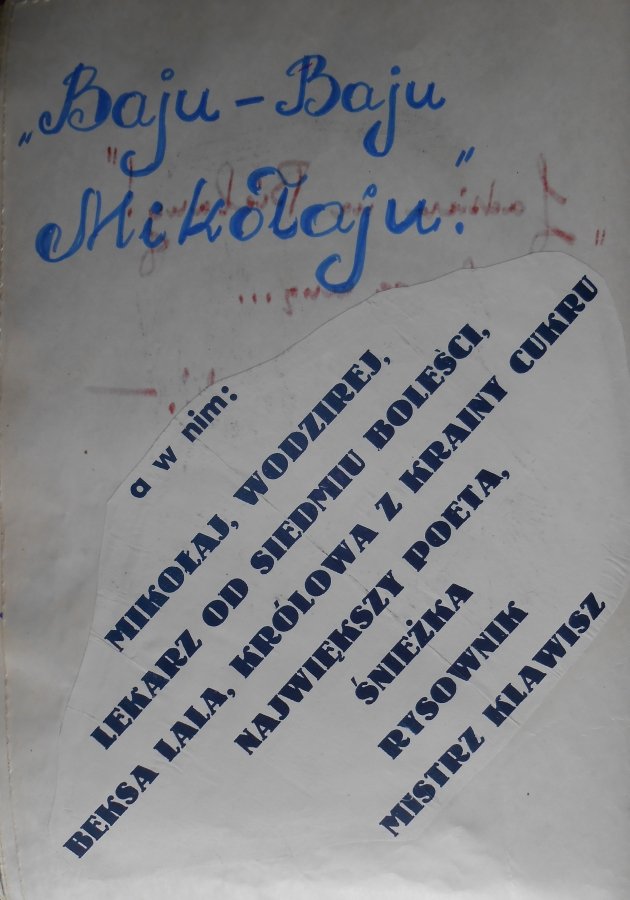 „Baju – Baju
Mikołaju."
a w nim:
MIKOŁAJ, WODZIREJ,
LEKARZ OD SIEDMIU BOLEŚCI,
BEKSA LALA, KRÓLOWA Z KRAINY CUKRU
NAJWIĘKSZY POETA,
ŚNIEŻKA
RYSOWNIK
MISTRZ KLAWISZ